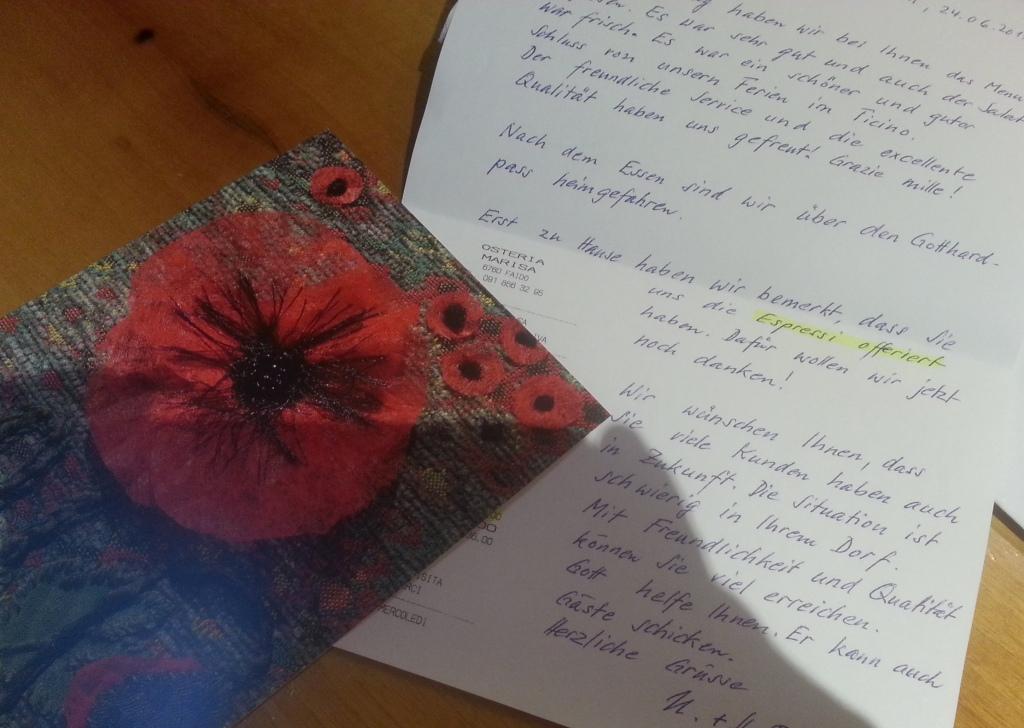 , 24.06.201
haben wir bei Ihnen das Menu
Es war sehr gut und auch der Salat
war frisch. Es war ein schöner und guter
Schluss von unsern Ferien im Ticino.
Der freundliche Service und die excellente
Qualität haben uns gefreut! Grazie mille!
Nach dem Essen sind wir über den Gotthard-
pass heimgefahren.
Erst zu Hause haben wir bemerkt, dass Sie
uns die Espressi offeriert
haben. Dafür wollen wir jetzt
noch danken!
Wir wünschen Ihnen, dass
Sie viele Kunden haben auch
in Zukunft. Die Situation ist
schwierig in Ihrem Dorf.
Mit Freundlichkeit und Qualität
können Sie viel erreichen.
Gott helfe Ihnen. Er kann auch
Gäste schicken.
Herzliche Grüsse
OSTERIA
MARISA
6760 FAIDO
091 866 32 95
MERCOLEDI